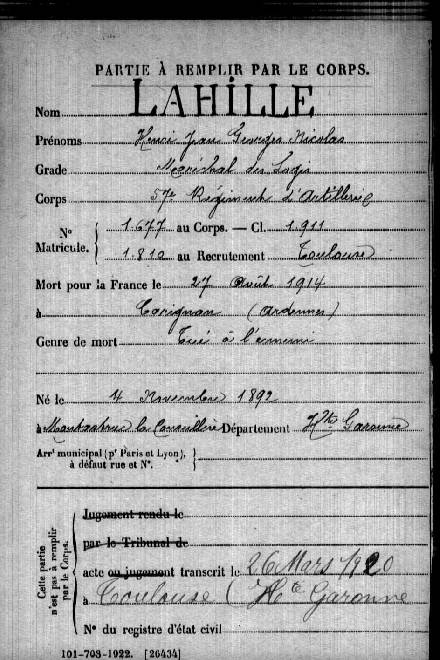 PARTIE À REMPLIR PAR LE CORPS.
Nom LAHILLE
Prénoms Henri Jean Georges Nicolas
Grade Maréchal des Logis
Corps 57e Régiment d'Artillerie
N° Matricule. { 1.677 au Corps. — Cl. 1.911
1.812 au Recrutement Toulouse
Mort pour la France le 27 Août 1914
à Carignan (Ardennes)
Genre de mort Tué à l'ennemi
Né le 4 Novembre 1892
à Montastruc la Conseillère Département Hte Garonne
Arrt municipal (pr Paris et Lyon), à défaut rue et N°. }
Cette partie n'est pas à remplir par le Corps.
Jugement rendu le
par le Tribunal de
acte ou jugement transcrit le 26 Mars 1920
à Toulouse (Hte Garonne
N° du registre d'état civil
101-708-1922. [26434]